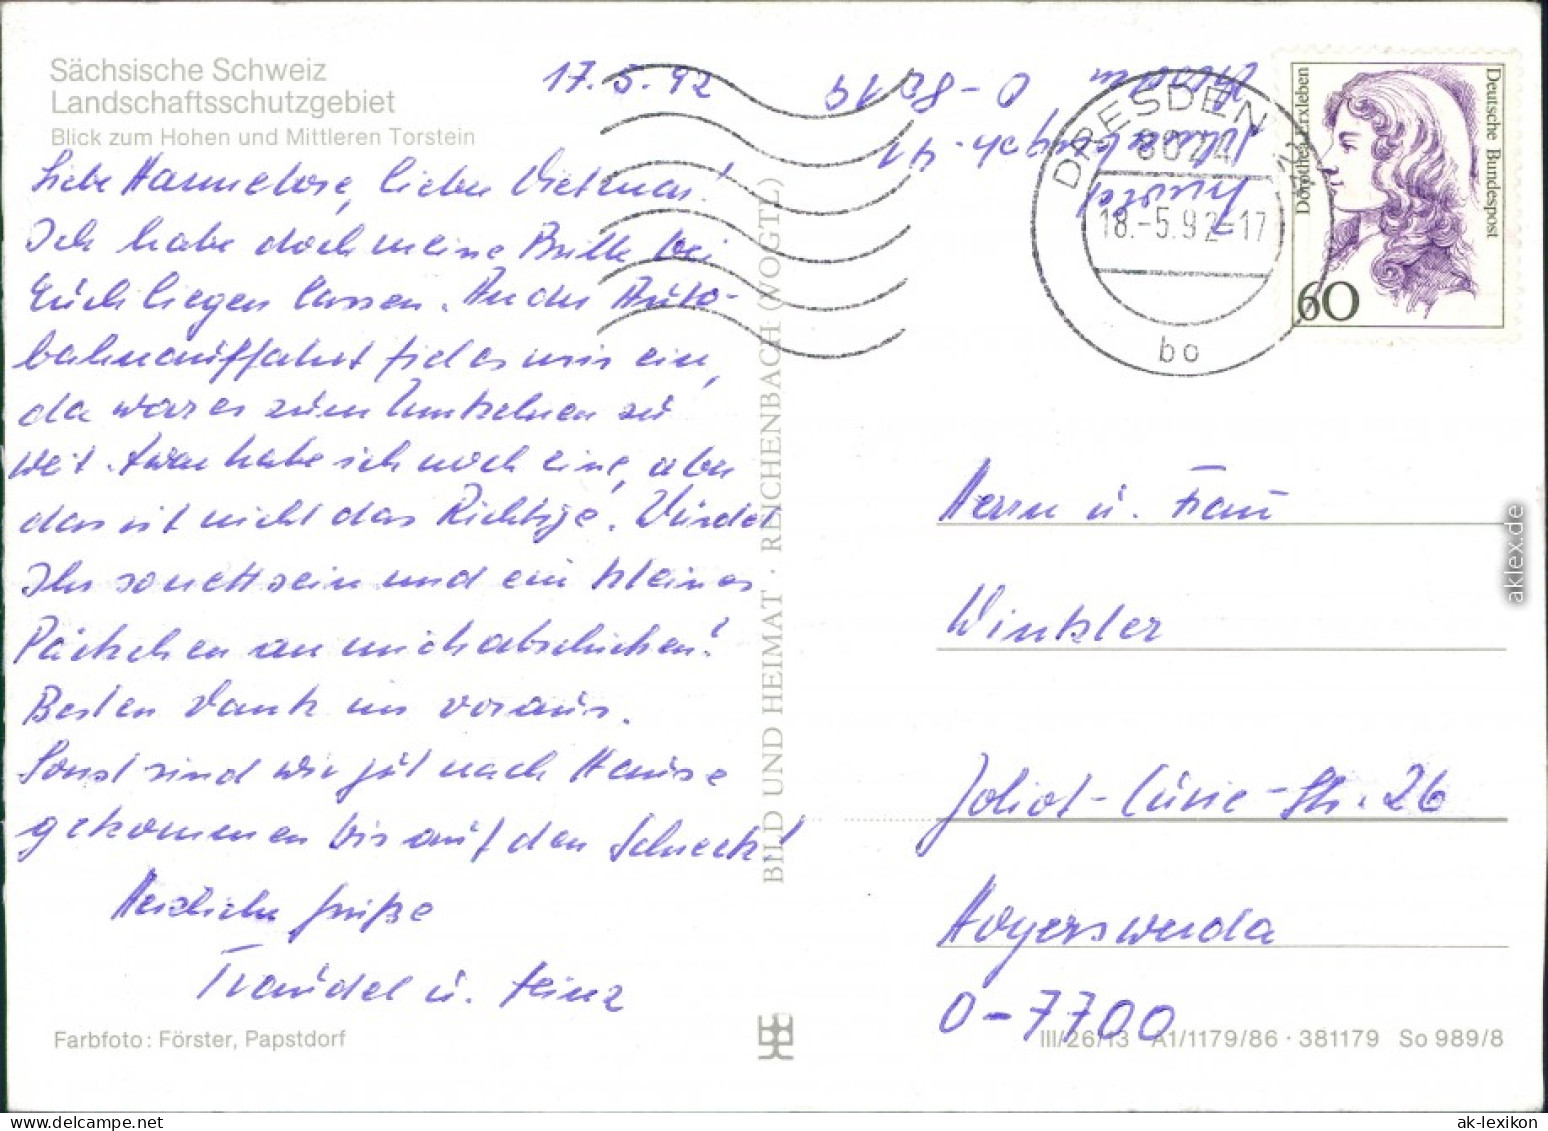 Sächsische Schweiz
Landschaftsschutzgebiet
Blick zum Hohen und Mittleren Torstein
17.5.92
Liebe Hannelore, lieber Dietmar!
Ich habe doch meine Brille bei
Euch liegen lassen. An der Auto-
bahnauffahrt fiel es mir ein,
da war es zum Umkehren zu
weit. Zwar habe ich noch eine, aber
das ist nicht das Richtige. Würdet
Ihr so nett sein und ein kleines
Päckchen an mich abschicken?
Besten Dank im voraus.
Sonst sind wir gut nach Hause
gekommen bis auf den Schreck!
Herzliche Grüße
Traudel u. Heinz
Farbfoto: Förster, Papstdorf
BILD UND HEIMAT · REICHENBACH (VOGTL)
41
Dresden O-8019
DRESDEN
8024
18.-5.92-17
bo
Dorothea Erxleben
Deutsche Bundespost
60
Herrn u. Frau
Winkler
Joliot-Curie-Str. 26
Hoyerswerda
O-7700
III/26/13 A1/1179/86 · 381179 So 989/8
aklex.de
ak-lexikon